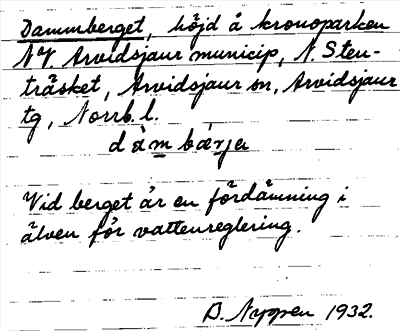 Dammberget, höjd å kronoparken
NV. Arvidsjaur municip, N. Sten-
träsket, Arvidsjaur sn, Arvidsjaur
tg, Norrb. l.
dàm bær̯ja
Vid berget är en fördämning i
älven för vattenreglering.
B. Nygren 1932.